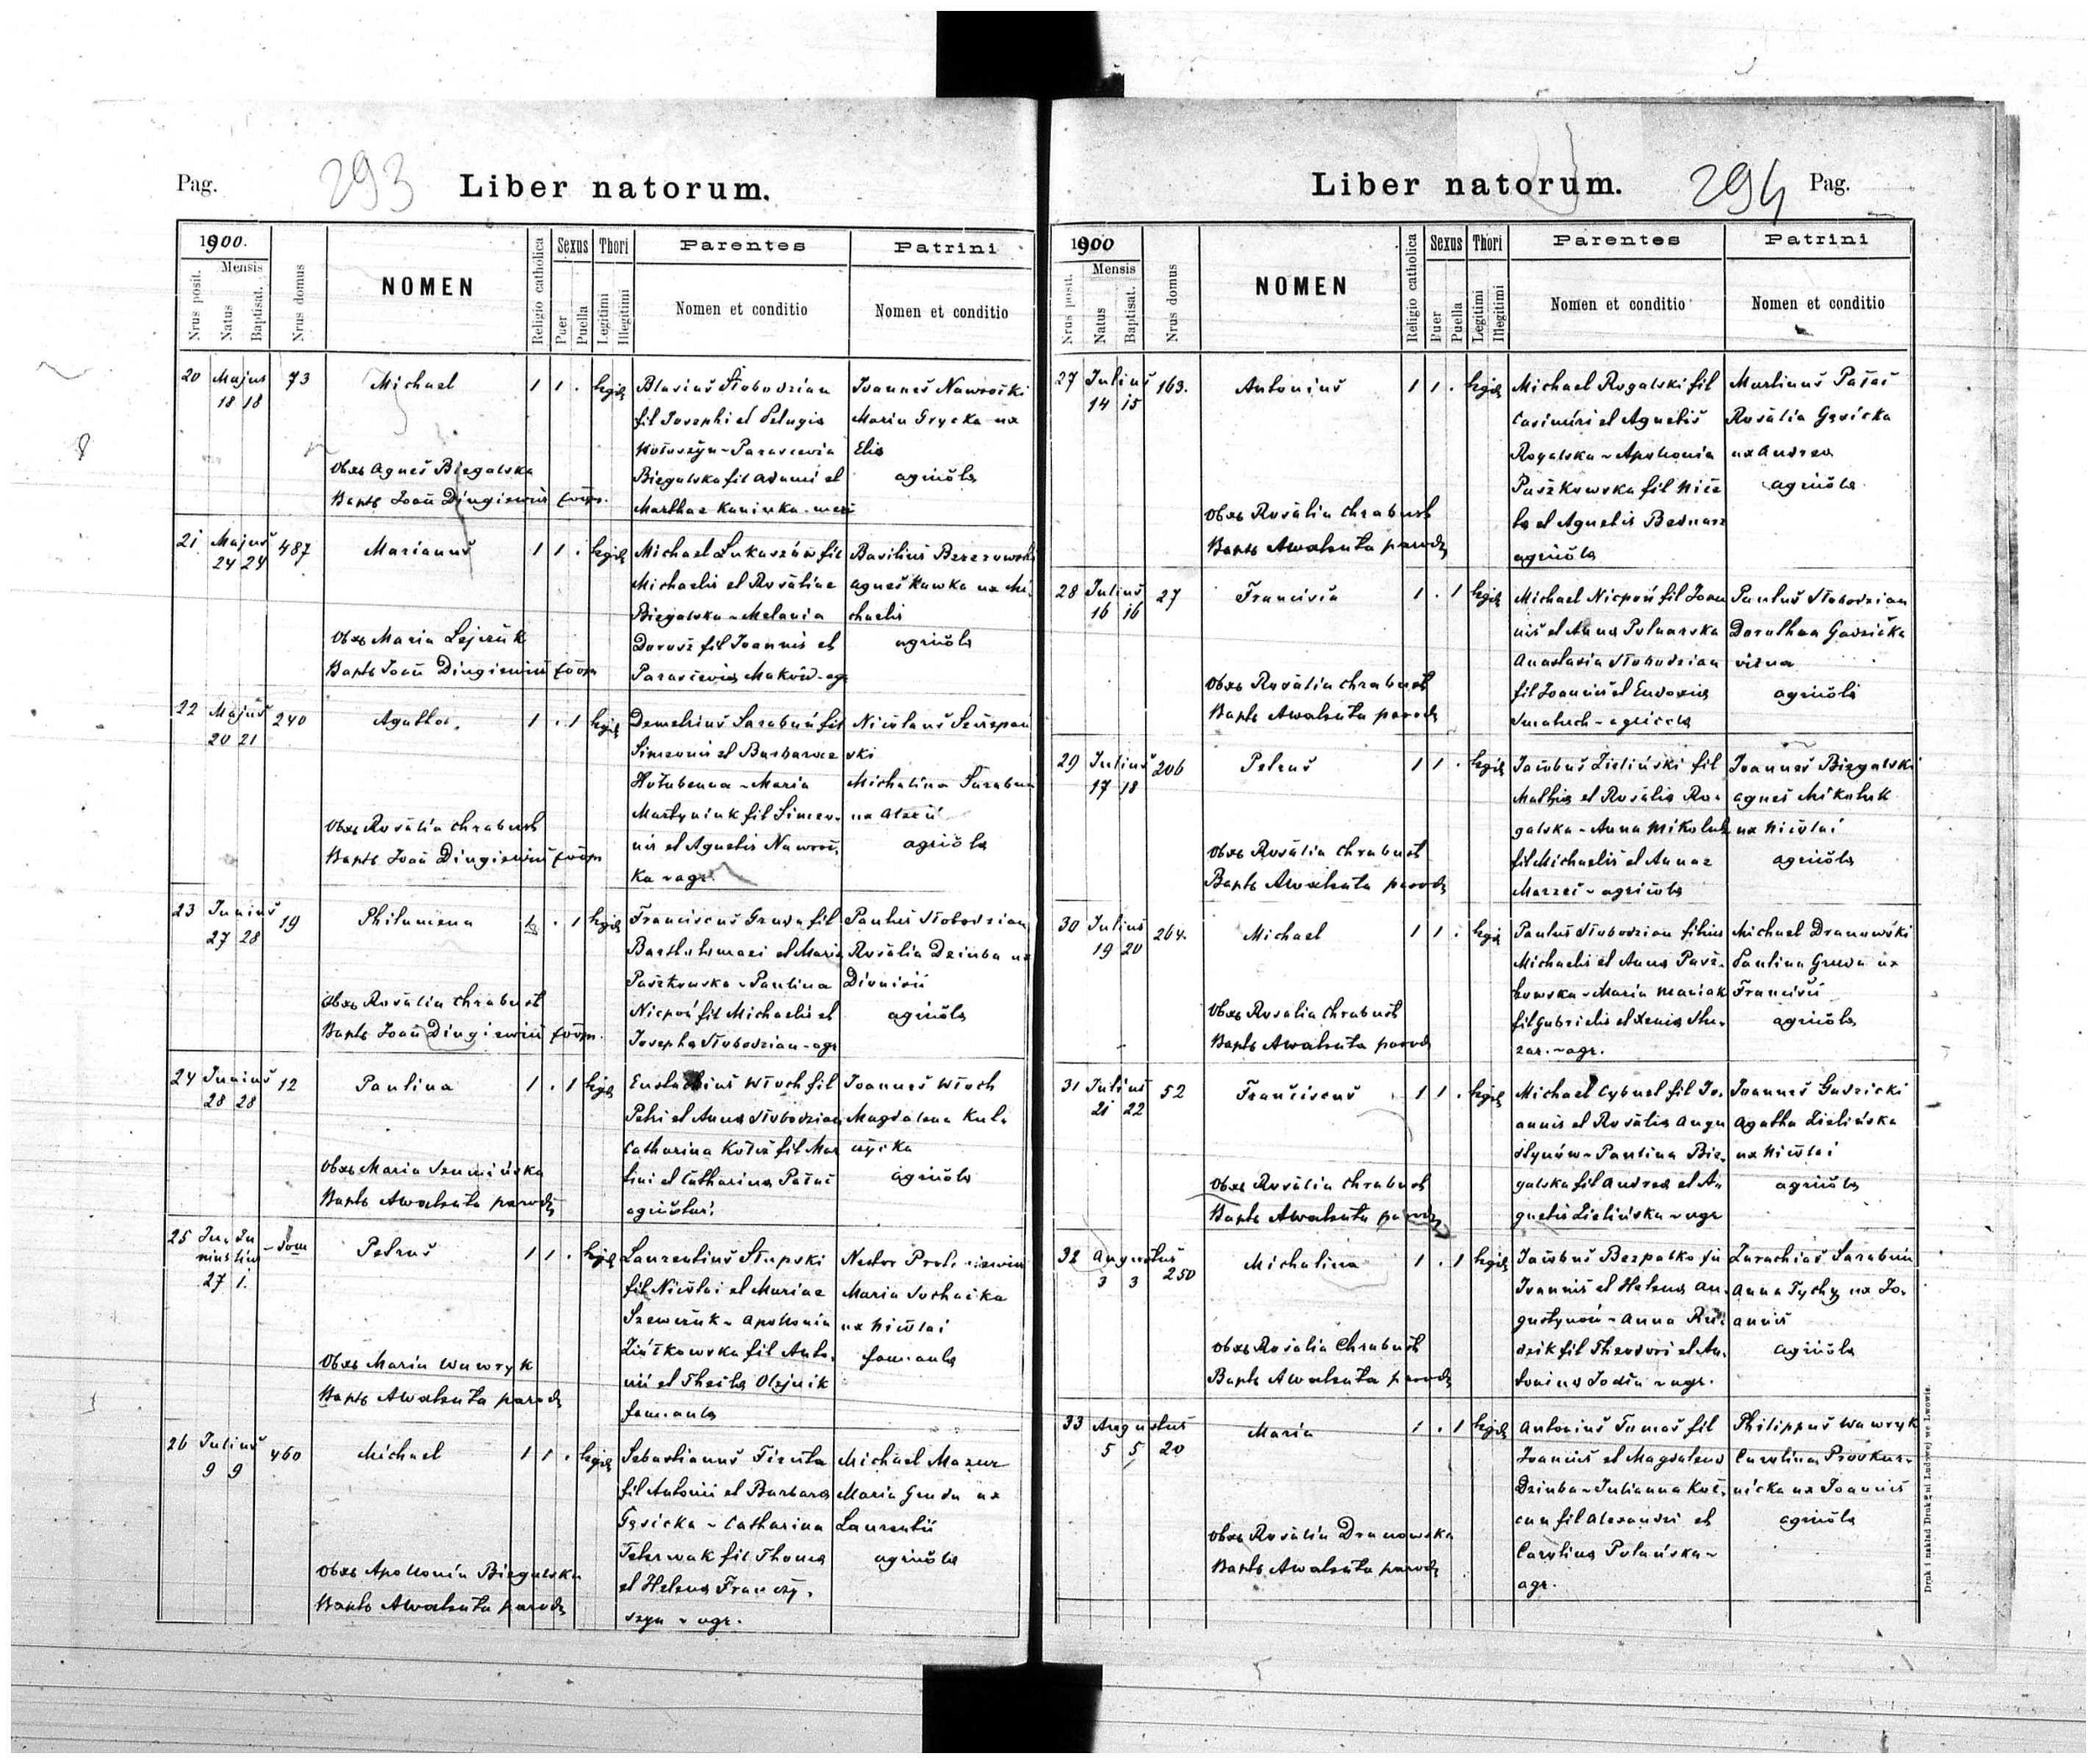 Pag.
293
Liber natorum.
1900.
Mensis
Nrus posit.
Natus
Baptisat.
Nrus domus
NOMEN
Religio catholica
Sexus
Puer
Puella
Thori
Legitimi
Illegitimi
Parentes
Nomen et conditio
Patrini
Nomen et conditio
20 Majus 73 Michael 1 1 . legit
18 18
Obst Agneš Biegalska
Bapts Joan Dingiewicz coop.
Blasius Słobodzian
fil Josephi et Pelagia
Wołoszyn - Parascevia
Biegalska fil Adami et
Marthae Kaninka
Joanneš Nawročki
Maria Grycka ux
Elia
agricola
21 Majuš 487 Marianuš 1 1 . legit
24 24
Obst Maria Lejczuk
Bapts Joan Dingiewicz coop
Michael Łukaszów fil
Michaelis et Rosaliae
Biegalska - Melania
Dorosz fil Joannis et
Parascevia Maków - agr
Basiliuš Berezowski
Agneš Kawka ux Mi
chaelis
agricola
22 Majuš 240 Agatha 1 . 1 legit
20 21
Obst Rosalia Chrabust
Bapts Joan Dingiewicz coop
Demetriuš Sarabun fil
Simeonis et Barbarae
Hołubenna - Maria
Martyniuk fil Simeo-
nis et Agnetis Nawroc
ka - agr.
Nicolauš Szczepań
ski
Michalina Sarabun
ux Alexii
agricola
23 Juniuš 19 Philumena 1 . 1 legit
27 28
Obst Rosalia Chrabust
Bapts Joan Dingiewicz coop.
Franciscuš Gruda fil
Bartholomaei et Maria
Paszkowska - Paulina
Nicpoń fil Michaelis et
Josepha Słobodzian - agr
Pauluš Słobodzian
Rosalia Dziuba ux
Dionisii
agricola
24 Juniuš 12 Paulina 1 . 1 legit
28 28
Obst Maria Szumińska
Bapts AWałuta paroch
Eustachiuš Włoch fil
Petri et Anna Słobodzian
Catharina fil Mar
tini et Catharina Pałac
agricolae
Joanneš Włoch
Magdalena Kul-
czycka
agricola
25 Ju- Ju dom Petruš 1 1 . legit
nius lius
27 1.
Obst Maria Wawryk
Bapts AWałuta paroch
Laurentiuš Słupski
fil Nicolai et Mariae
Szewczuk - Apollonia
Ziółkowska fil Anto-
nii et Thecla Olejnik
fam. aula
Nestor
Maria Sochacka
ux Nicolai
fam. aula
26 Juliuš 460 Michael 1 1 . legit
9 9
Obst Apollonia Biegalska
Bapts AWałuta paroch
Sebastianuš
fil Antonii et Barbara
Gąsicka - Catharina
Teterwak fil Thoma
et Helena Franczy-
szyn - agr.
Michael Mazur
Maria Gruda ux
Laurentii
agricola
Liber natorum.
294
Pag.
1900
Mensis
Nrus posit.
Natus
Baptisat.
Nrus domus
NOMEN
Religio catholica
Sexus
Puer
Puella
Thori
Legitimi
Illegitimi
Parentes
Nomen et conditio
Patrini
Nomen et conditio
27 Juliuš 163. Antoniuš 1 1 . legit
14 15
Obst Rosalia Chrabust
Bapts AWałuta paroch
Michael Rogalski fil
Casimiri et Agnetis
Rogalska - Apollonia
Paszkowska fil Nico
lai et Agnetis Bednarz
agricola
Martinuš Pałac
Rosalia Gąsicka
ux Andrea
agricola
28 Juliuš 27 Francisca 1 . 1 legit
16 16
Obst Rosalia Chrabust
Bapts AWałuta paroch
Michael Nicpoń fil Joan
nis et Anna Polnarska
Anastasia Słobodzian
fil Joannis et Eudoxia
Smaluch - agricola
Pauluš Słobodzian
Dorothea Gadzicka
vidua
agricola
29 Juliuš 206 Petruš 1 1 . legit
17 18
Obst Rosalia Chrabust
Bapts AWałuta paroch
Jacobuš Zieliński fil
Mathia et Rosalia Ro-
galska - Anna Mikoluk
fil Michaelis et Annae
Marzec - agricola
Joanneš Biegalski
Agneš Mikoluk
ux Nicolai
agricola
30 Juliuš 264. Michael 1 1 . legit
19 20
Obst Rosalia Chrabust
Bapts AWałuta paroch
Pauluš Słobodzian filius
Michaelis et Anna Pasz-
kowska - Maria Maciak
fil Gabrielis et Xenia Slu-
zar. - agr.
Michael Dranowski
Paulina Gruda ux
Francisci
agricola
31 Juliuš 52 Franciscuš 1 1 . legit
21 22
Obst Rosalia Chrabust
Bapts AWałuta paroch
Michael Cybuch fil Jo-
annis et Rosalia Augu
stynów - Paulina Bie-
galska fil Andrea et A-
gnetis Zielińska - agr
Joanneš Gadzicki
Agatha Zielińska
ux Nicolai
agricola
32 Augustuš 250 Michalina 1 . 1 legit
3 3
Obst Rosalia Chrabust
Bapts AWałuta paroch
Jacobuš Bezpalko fil
Joannis et Helena Au-
gustynów - Anna Ru-
dzik fil Theodori et An-
tonina - agr.
Zachariaš Sarabun
Anna Tychy ux Jo-
annis
agricola
33 Augustuš 20 Maria 1 . 1 legit
5 5
Obst Rosalia Dranowska
Bapts AWałuta paroch
Antoniuš Tomaš fil
Joannis et Magdalena
Dziuba - Julianna Koc-
can fil Alexandri et
Carolina Polańska -
agr.
Philippuš Wawryk
Carolina Proskur-
nicka ux Joannis
agricola
Druk i nakład Drukarni Ludowej we Lwowie.